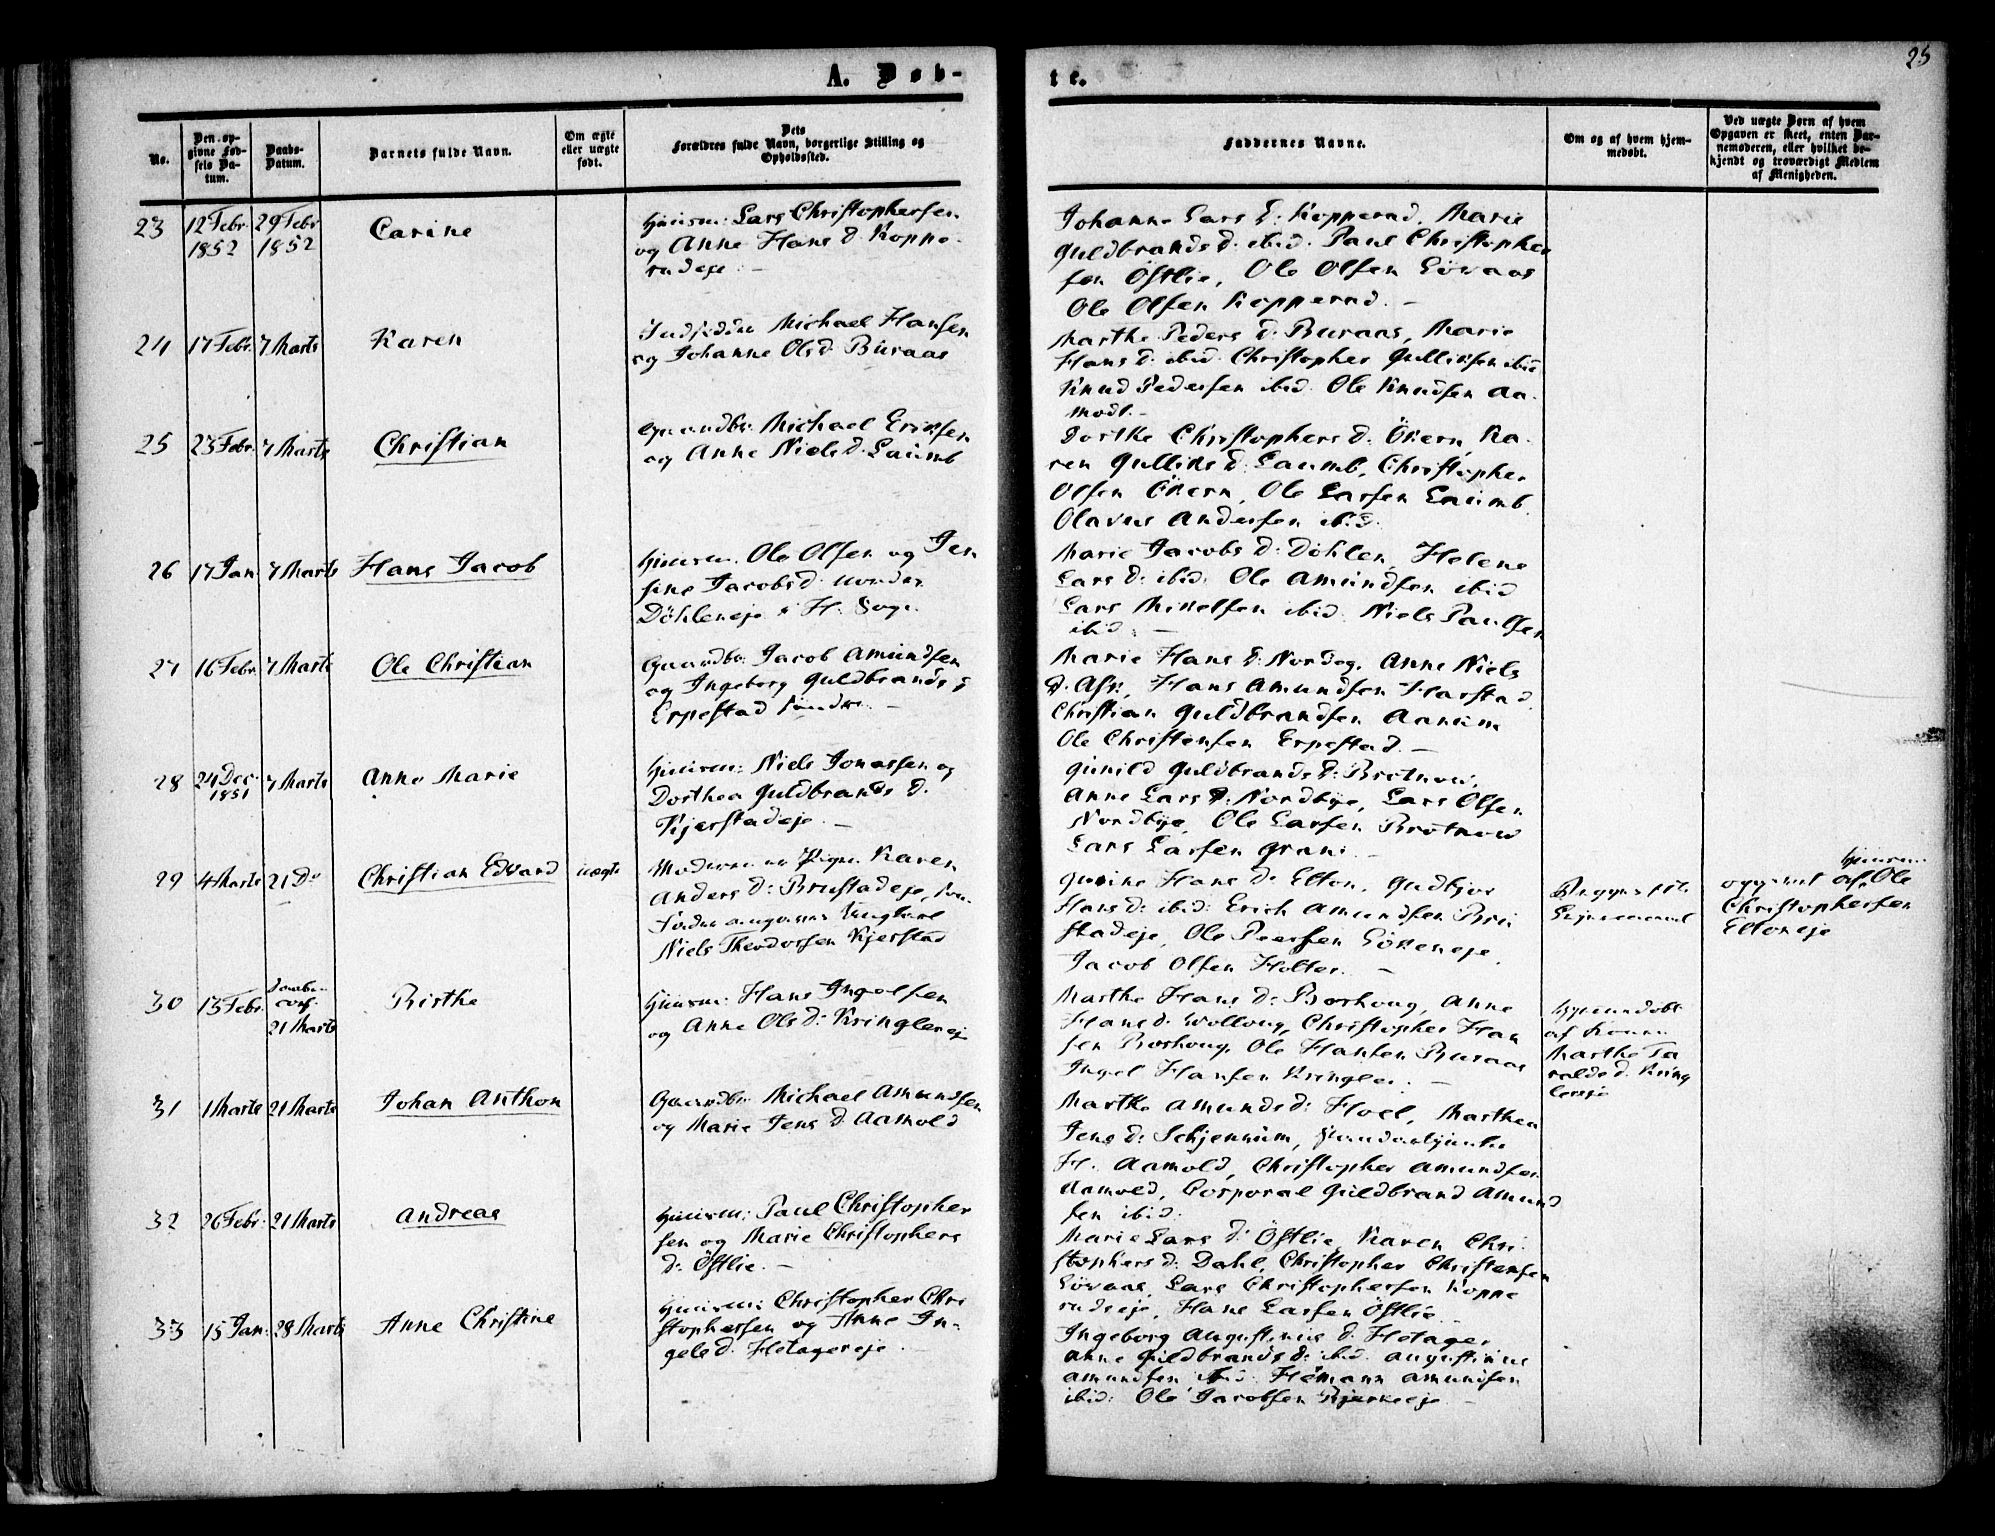 25
A. Døb-
te.
No.
Den op-
givne Fød-
sels Da-
tum.
Daabs-
Datum.
Barnets fulde Navn.
Om ægte
eller uægte
født.
Dets
Forældres fulde Navn, borgerlige Stilling og
Opholdssted.
Faddernes Navne.
Om og af hvem hjem-
medøbt.
Ved uægte Børn af hvem
Opgaven er skeet, enten Bar-
nemoderen, eller hvilket be-
kjendt og troværdigt Medlem
af Menigheden.
23
12 Febr
1852
29 Febr
1852
Carine
Huusm: Lars Christophersen
og Anne Hans d. Koppe-
rudeje. -
Johanne Lars d: Kopperud, Marie
Guldbrands d. ibid. Paul Christopher
sen Östlie, Ole Olsen Lövaas
Ole Olsen Kopperud. -
24
17 Febr.
7 Marts
Karen
Michael Hansen
og Johanne Ols d. Buraas
Marthe Peders d. Buraas, Marie
Hans d. ibid. Christopher Gulliksen ibid
Knud Pedersen ibid. Ole Knudsen Aa-
modt. -
25
23 Febr.
7 Marts
Christian
Gaardbr. Michael Eriksen
og Anne Niels d. Laumb
Dorthe Christophers d. Ökern, Ka-
ren Gulliks d. Laumb, Christopher
Olsen Ökern, Ole Larsen Laumb.
Olavus Andersen ibid.
26
17 Jan
7 Marts
Hans Jacob
Huusm. Ole Olsen og Jen
sine Jacobs d. nordre
Döhleneje i H. Sogn
Marie Jacobs d: Döhlen, Helene
Lars d: ibid: Ole Amundsen ibid
Lars Mikelsen ibid. Niels Paulsen
ibid. -
27
16 Febr.
7 Marts
Ole Christian
Gaardbr. Jacob Amundsen
og Ingeborg Guldbrands d
Erpestad söndre. -
Marie Hans d: Nordeg, Anne Niels
d. Ask, Hans Amundsen Harstad,
Christian Guldbrandsen Aanrum
Ole Christensen Erpestad. -
28
24 Dec.
1851
7 Marts
Anne Marie
Huusm: Niels Jonassen og
Dorthea Guldbrands d.
Kjerstadeje. -
Gunild Guldbrands d: Brotnow,
Anne Lars d: Nordbye, Lars Olsen
Nordbye, Ole Larsen Brotnow
Lars Larsen Grani. -
29
4 Marts
21 Do
Christian Edvard
uægte
Moderen er Pigen Karen
Anders d: Brustadeje, som
Fader angives Ungkarl
Niels Theodorsen Kjerstad
Gurine Hans d: Elton, Gudbjor
Hans d: ibid: Erich Amundsen Bru
stadeje, Ole Peersen Lökeneje,
Jacob Olsen Holter. -
Huusm.
opgivet af Ole
Christophersen
Eltoneje
30
13 Febr.
Daaben
conf.
21 Marts
Birthe
Huusm: Hans Ingelsen
og Anne Ols d: Kringlereje
Marthe Hans d: Borhoug, Anne
Hans d. Wolloug, Christopher Han
sen Borhoug, Ole Hansen Buraas
Ingel Hansen Kringler. -
hjemmedöbt
af Konen
Marthe Ta
ralds d. Kring
lereje
31
1 Marts
21 Marts
Johan Anthon
Gaardbr. Michael Amundsen
og Marie Jens d. Aamold
Marthe Amunds d: Hoel, Marthea
Jens d: Schjennum,
H. Aamold, Christopher Amundsen
Aamold, Corporal Guldbrand Amund
sen ibid.
32
26 Febr.
21 Marts
Andreas
Huusm: Paul Christopher
sen og Marie Christophers
d: Östlie. -
Marie Lars d: Östlie, Karen Chri-
stophers d: Dahl, Christopher Christensen
Lövaas, Lars Christophersen Koppe
rudeje, Hans Larsen Östlie. -
33
15 Jan.
28 Marts
Anne Christine
Huusm: Christopher Chri
stophersen og Anne In-
gels d. Hetagereje. -
Ingeborg Augustinus d. Hetager
Anne Guldbrands d: ibid. Augustinus
Amundsen ibid. Hemann Amundsen
ibid: Ole Jacobsen Bjerkeeje -